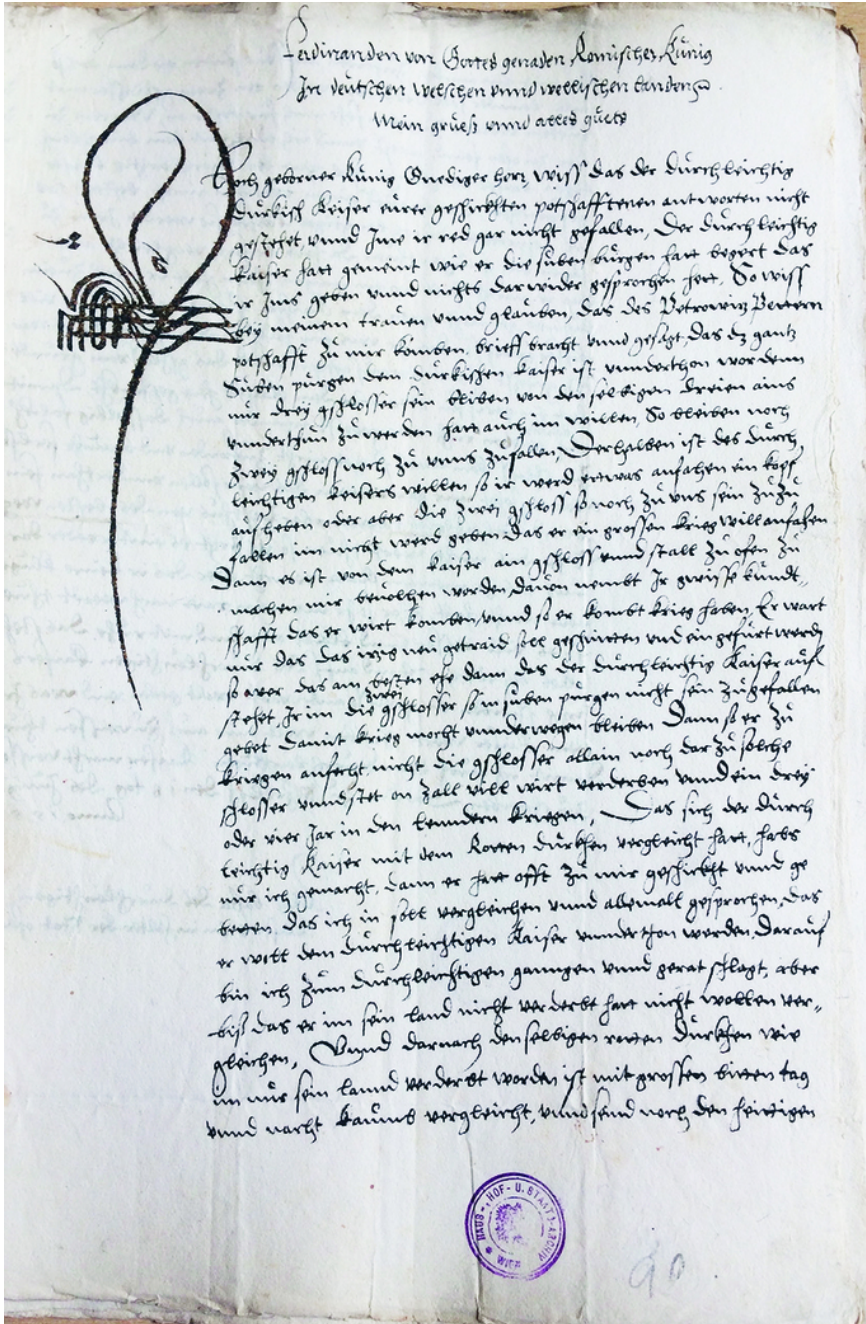 Ferdinanden von Gottes genaden Romischer Künig
In deütschen welschen vnnd wellischen landen
Mein grueß vnnd alles güets
Hoch geborner Künig Gnediger herr, wiss das der dürchleichtig
Dürkisch Keiser eürer geschickhten potschafftenen antworten nicht
gestehet, vnnd Ime ir red gar nicht gefallen, Der dürchleichtig
Kaiser hatt gemeint wie er die süben bürgen hatt begert das
ir Ims geben vnnd nichts darwider gesprochen hett, So wiss
bey meinem trauen vnnd glauben, das des Petrowitz Pettern
potschafft zü mir komben, brieff bracht vnnd gesagt, das dz gantz
Süben pürgen dem dürkischen kaiser ist vnnderthon wordenn
nür drey gschlosser sein bliben von denselbigen dreien ains
vnnderthun zü werden hatt auch im willen, So bleiben noch
zwey gschloss noch zü vnns züfallen, Derhalben ist des dürch
leichtigen keisers willen so ir werd ettwas anfahen ein kopf
aufheben oder aber die zwei gschloss so noch zü vns sein zü zü
fallen im nicht werd geben das er ein grossen krieg will anfahen
Dann es ist von dem kaiser ain gschloss vnnd stall zü ofen zü
machen mir beuolhen worden, dauon nembt Ir gwisse kundt,,
schafft das er wirt komben, vnnd so er kombt krieg haben, Er wart
nür das das itzig neü getraid soll geschnitten vnd eingefürt werdn
so wer das am besten ehe dann das der dürchleichtig Kaiser auf
stehet, Ir im die zwei gschlosser so in süben pürgen nicht sein zügefallen
gebet damit krieg mocht vnnderwegen bleiben Dann so er zü
kriegen anfecht, nicht die gschlosser allain noch dar zü solche
schlosser vnnd stet on zall vill wirt verderben vnnd ein drey
oder vier Jar in den lenndern kriegen, Das sich der dürch
leichtig Kaiser mit dem Rotten dürkhen vergleicht hatt, habs
nür ich gemacht, dann er hatt offt zü mir geschickht vnnd ge
betten, das ich in solt vergleichen vnnd allemalt gesprochen, das
er woll dem dürchleichtigen Kaiser vnnderthon werden, darauf
bin ich züm dürchleichtigen ganngen vnnd gerat schlagt, aber
biß das er im sein land nicht verderbt hatt nicht wollen ver,,
gleichen, Vnnd darnach denselbigen rotten dürkhen wie
im nür sein lannd verderbt worden ist mit grossen bitten tag
vnnd nacht kaümb vergleicht, vnnd send noch den heütigen
HAUS-, HOF- U. STAATS-ARCHIV
WIEN
90